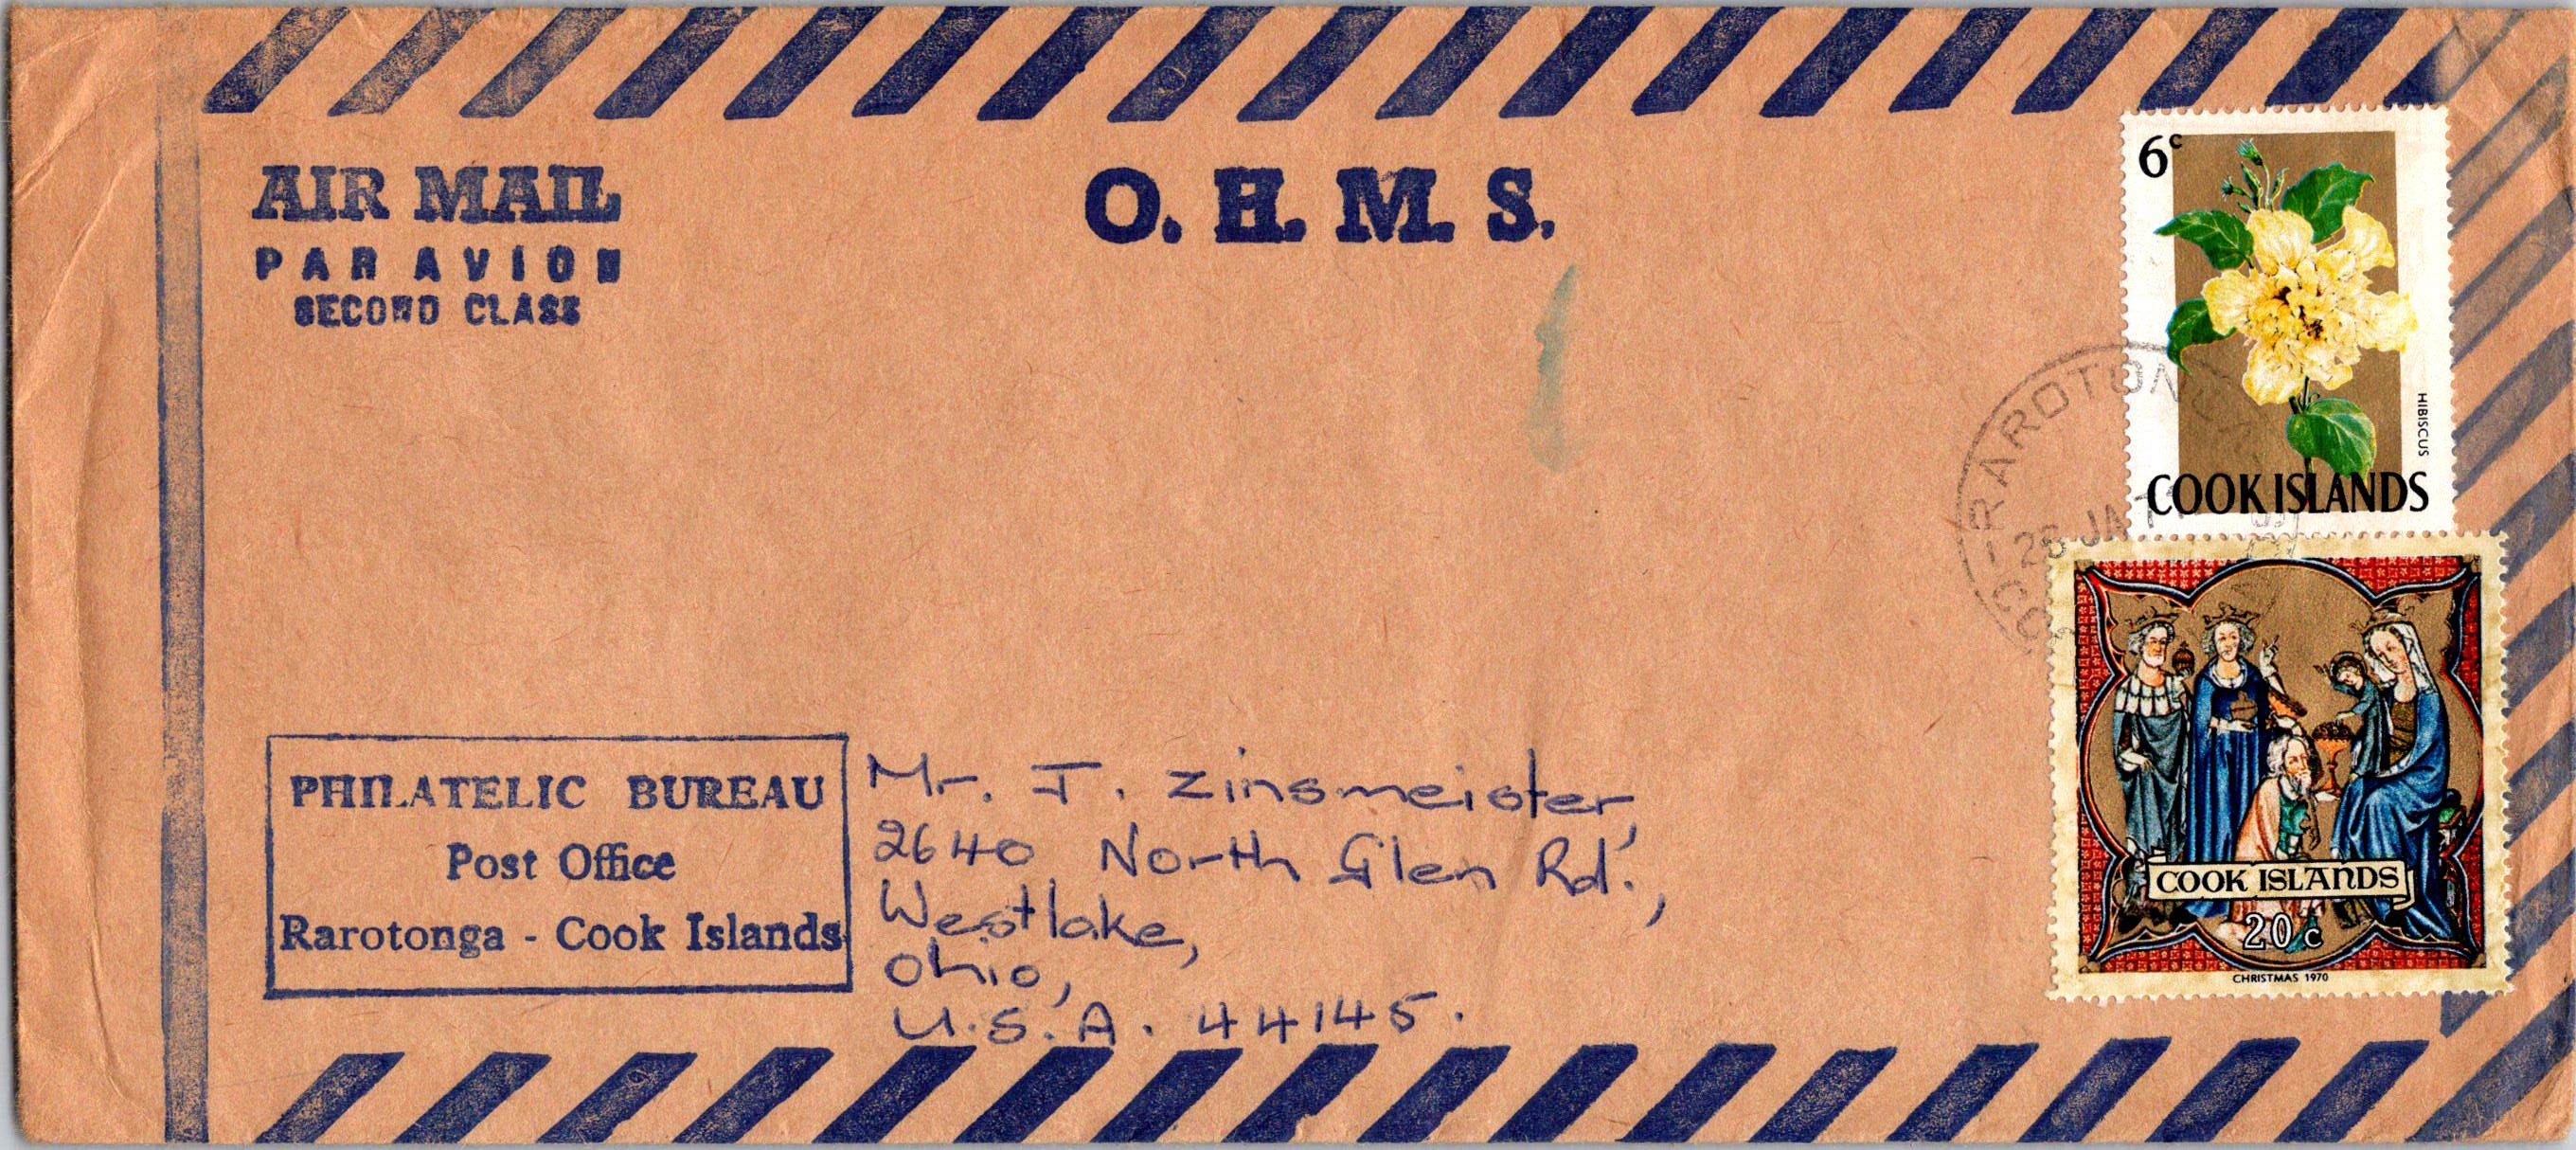 AIR MAIL
PAR AVION
SECOND CLASS
O. H. M. S.
6c
HIBISCUS
COOK ISLANDS
RAROTONGA
26 JA 71
COOK ISLANDS
20c
CHRISTMAS 1970
PHILATELIC BUREAU
Post Office
Rarotonga - Cook Islands
Mr. J. Zinsmeister,
2640 North Glen Rd.,
Westlake,
Ohio,
U.S.A. 44145.